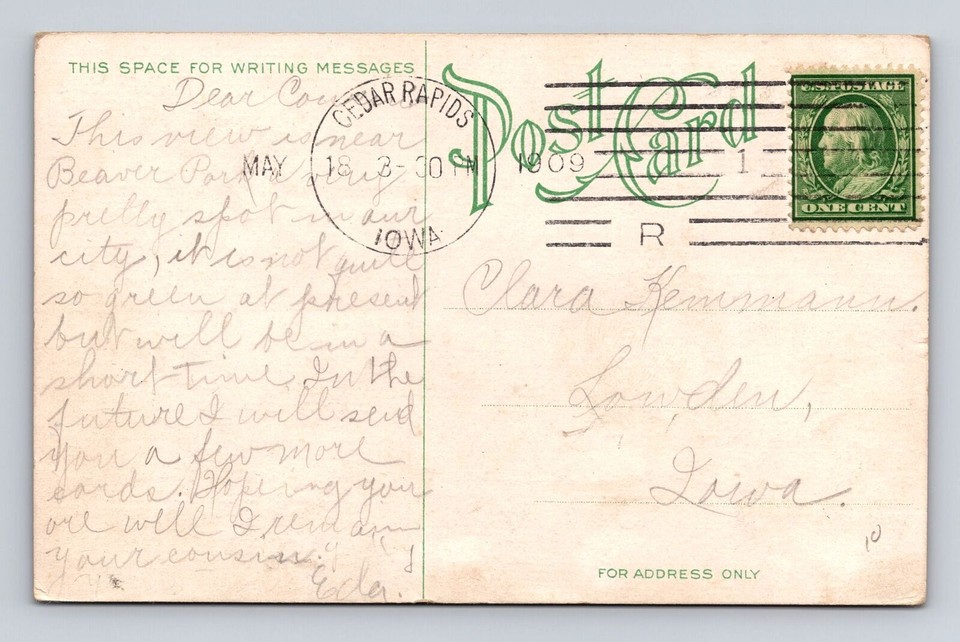 THIS SPACE FOR WRITING MESSAGES
Dear
This view is near
Beaver Park a very
pretty spot in our
city, it is not quite
so green at present
but will be in a
short time. In the
future I will send
you a few more
cards. Hoping you
are well I remain
your cousin.
Eda.
Post Card
CEDAR RAPIDS
MAY 18 3-30 PM 1909
IOWA
1
R
U.S. POSTAGE
ONE CENT
Clara Kemmann.
Lowden,
Iowa.
10
FOR ADDRESS ONLY